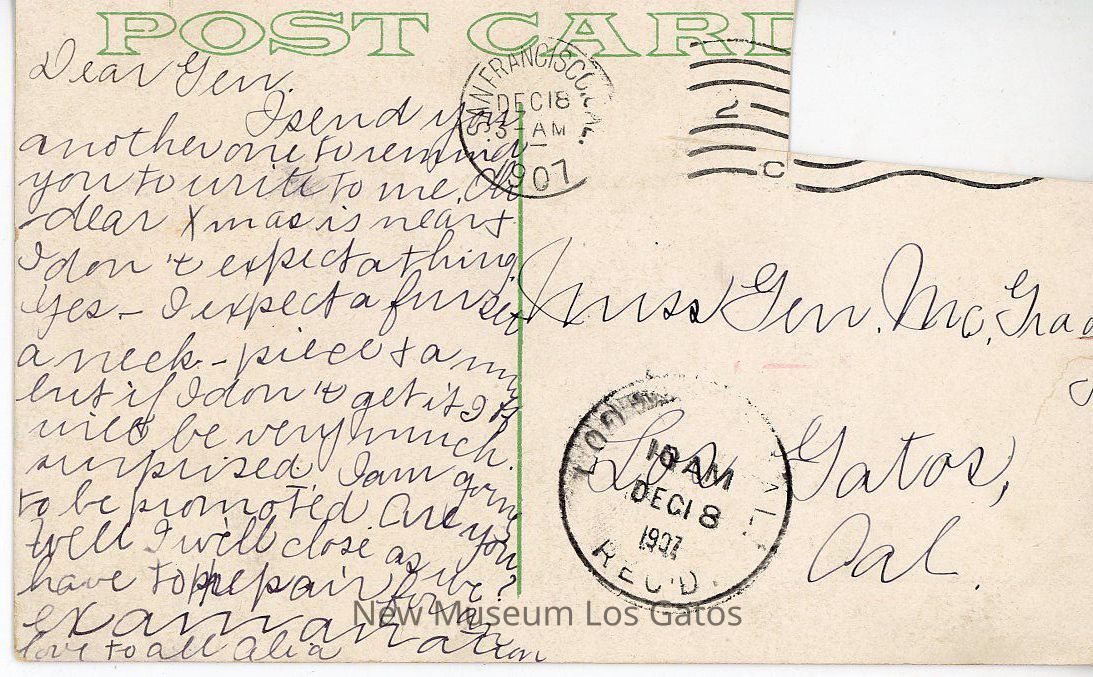 POST CARD
Dear Gen.
I send you
another one to remind
you to write to me. Oh
dear Xmas is near &
I don't expect a thing
yes - I expect a fur set
a neck-piece & a muff
but if I don't get it I
will be very much
surprised. I am going
to be promoted. Are you?
Well I will close as we
have to prepair for an
examanation
love to all Alia
SAN FRANCISCO, CAL.
DEC 18
3-AM
1907
2
C
Miss Gen. Mc.Grad
Los Gatos,
Cal.
LOS GATOS CAL.
10 AM
DEC 18
1907
REC'D.
New Museum Los Gatos